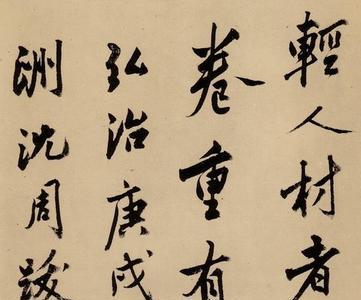 輕人材者
卷重有
弘治庚戌
洲沈周跋